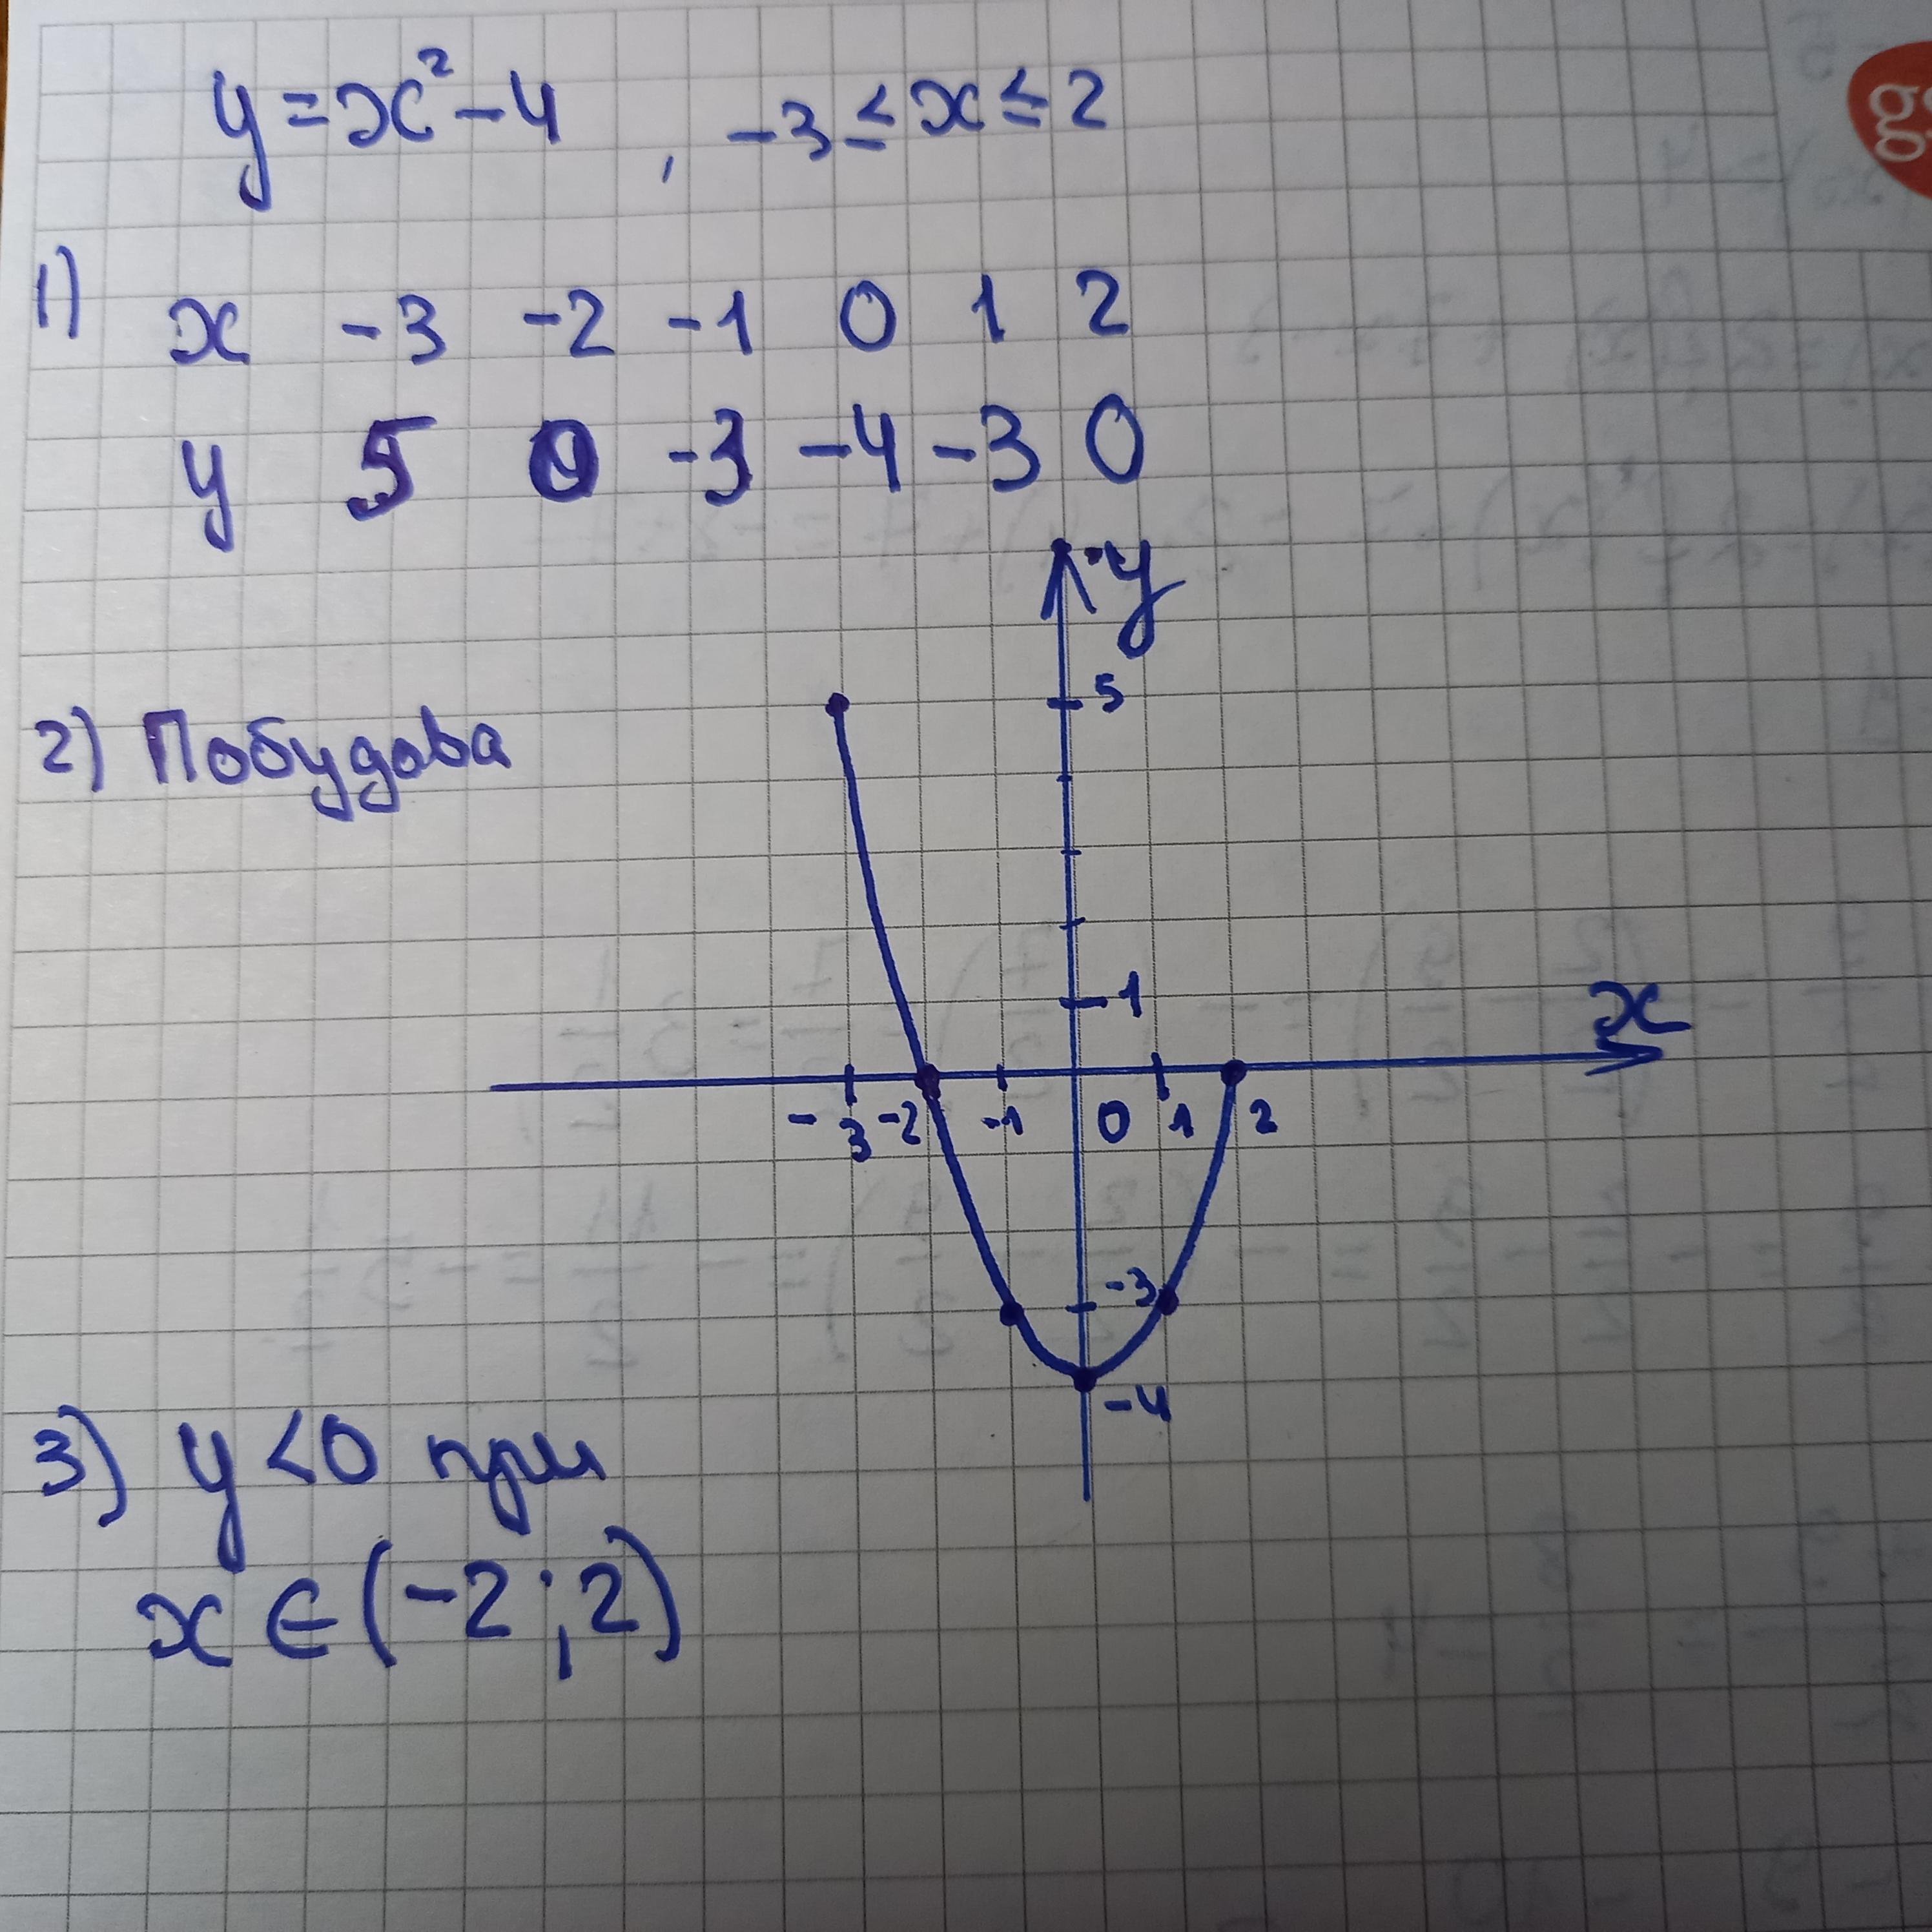 y = x² - 4 , -3 ≤ x ≤ 2
1) x -3 -2 -1 0 1 2
y 5 0 -3 -4 -3 0
y
5
2) Побудова
1
x
-3 -2 -1 0 1 2
-3
-4
3) y < 0 при
x ∈ (-2 ; 2)
g